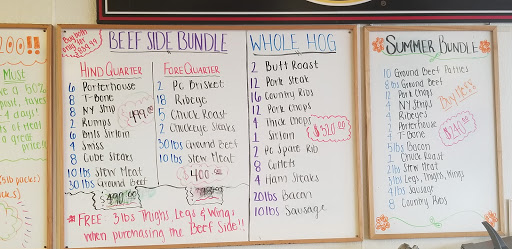 00!!
MUST
4 days!
Buy Both
only for
$899.99
BEEF SIDE BUNDLE
HIND QUARTER
6 Porterhouse
8 T-Bone
8 NY Strip
2 Rumps
6 Bnls Sirloin
4 Swiss
8 Cube Steaks
10 lbs Stew Meat
30 lbs Ground Beef
499.00
FORE QUARTER
2 Pc Brisket
18 Ribeye
5 Chuck Roast
2 Chuckeye Steaks
30 lbs Ground Beef
10 lbs Stew Meat
400.00
*FREE: 3lbs Thighs, Legs & Wings
when purchasing the Beef Side!!
WHOLE HOG
2 Butt Roast
12 Pork Steak
16 Country Ribs
12 Pork Chops
4 Thick Chops
4 Sirloin
2 Pc Spare Rib
8 Cutlets
4 Ham Steaks
20lbs Bacon
10 lbs Sausage
$320.00
SUMMER BUNDLE
10 Ground Beef Patties
8 lbs Ground Beef
12 Pork Chops
4 NY Strips
4 Ribeyes
2 Porterhouse
2 T-Bone
5 lbs Bacon
2 Chuck Roast
2 lbs Stew Meat
5 lbs Legs, Thighs, Wings
4 lbs Sausage
8 Country Ribs